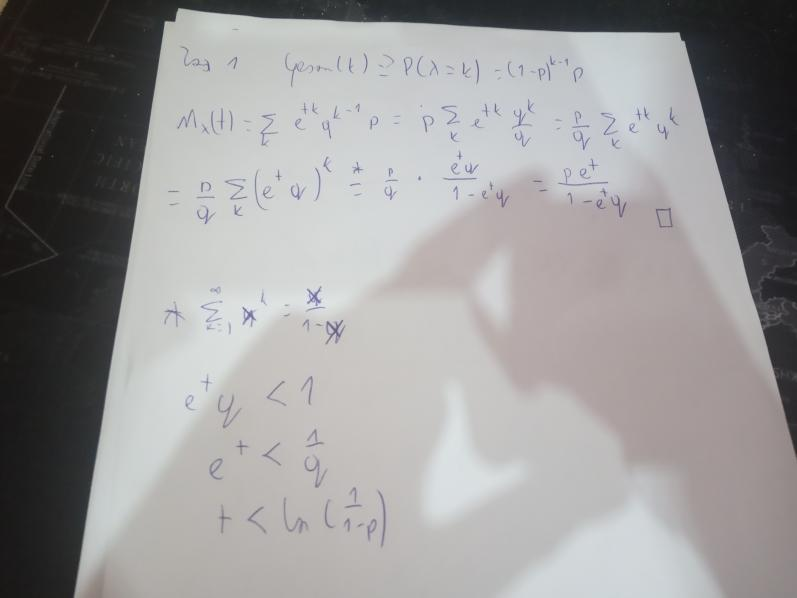 Zad 1 Geom(k) => P(λ=k) = (1-p)^{k-1} p
M_x(t) = Σ_k e^{tk} q^{k-1} p = p Σ_k e^{tk} q^k/q = p/q Σ_k e^{tk} q^k
= p/q Σ_k (e^t q)^k =* p/q · e^t q/(1-e^t q) = p e^t/(1-e^t q) □
* Σ_{k=1}^∞ x^k = x/(1-x)
e^t q < 1
e^t < 1/q
t < ln(1/(1-p))